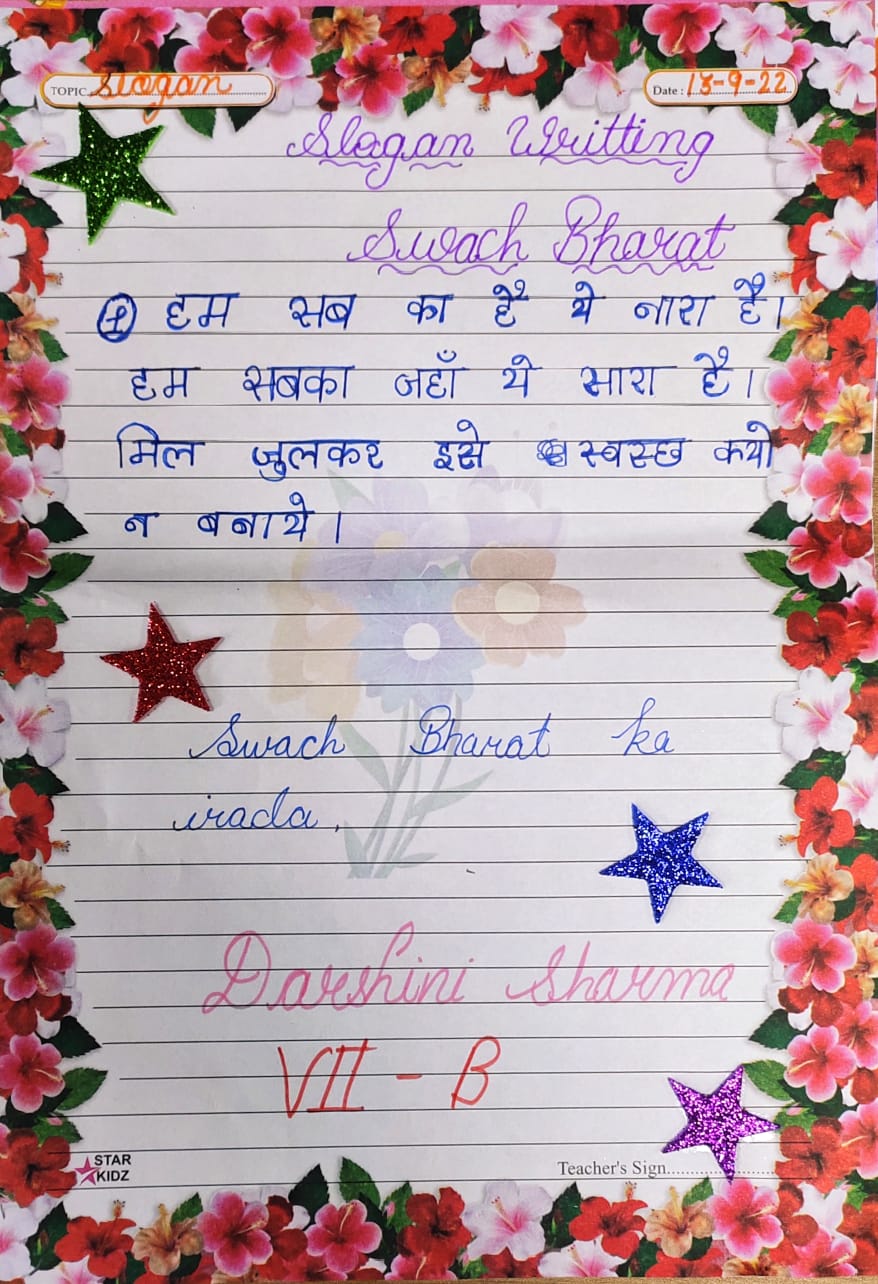 TOPIC Slogan
Date : 13-9-22
Slogan Writting
Swach Bharat
① हम सब का है ये नारा है।
हम सबका जहाँ ये सारा है।
मिल जुलकर इसे स्वस्छ कयो
न बनाये।
Swach Bharat ka
irada.
Darshini Sharma
VII - B
STAR
KIDZ
Teacher's Sign